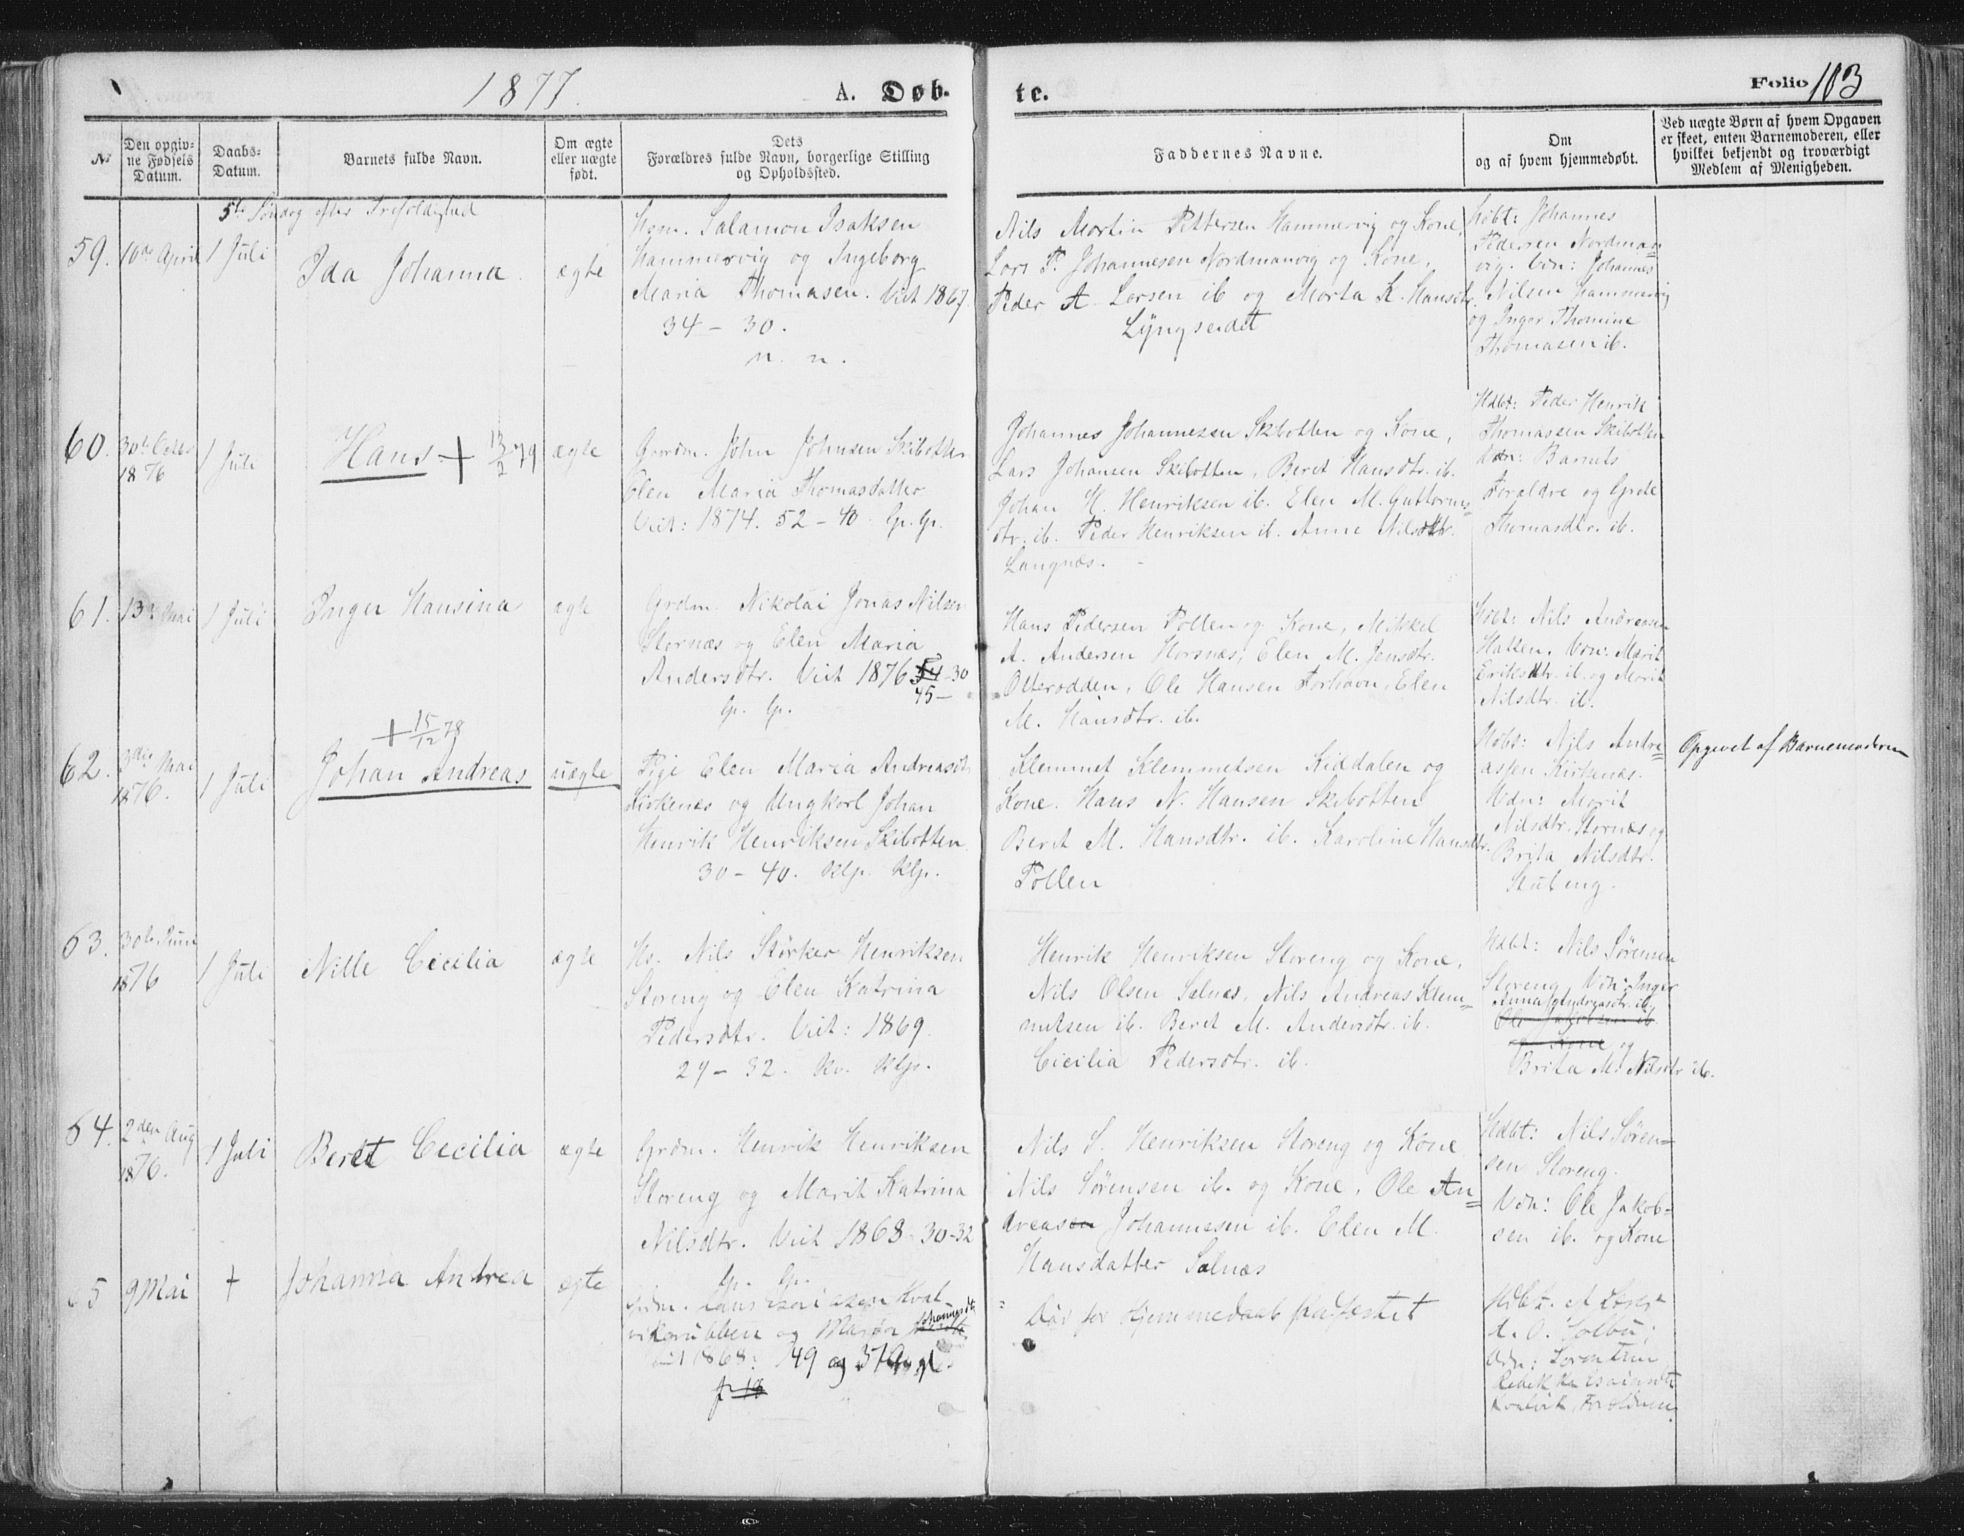 1877. A. Døb- te. Folio 103
No
Den opgiv-
ne Fødsels
Datum.
Daabs-
Datum.
Barnets fulde Navn.
Om ægte
eller uægte
født.
Dets
Forældres fulde Navn, borgerlige Stilling
og Opholdssted.
Faddernes Navne.
Om
og af hvem hjemmedøbt.
Ved uægte Børn af hvem Opgaven
er skeet, enten Barnemoderen, eller
hvilket bekjendt og troværdigt
Medlem af Menigheden.
5te Søndag efter Trefoldighed
59. 16de April 1 Juli
Ida Johanna
ægte
Salamon Isaksen
Hammervig og Ingeborg
Maria Thomasen. Viet 1867.
34 - 30.
n. n.
Nils Martin Pettersen Hammervig og Kone,
Lars P. Johannesen Nordmanvig og Kone,
Peder A Larsen ib og Marta K. Hansdtr.
Lÿngseidet
Hdbt: Johannes
Pedersen Nordman-
vig. Vdn: Johannes
Nilsen Hammervig
og Inger Thomine
Thomasen ib.
60. 30te Octbr
1876 1 Juli
Hans + 13/2 79
ægte
Gaardm. John Johnsen Skibotten
Elen Maria Thomasdatter
Viet: 1874. 52 - 40. Gp. Gp.
Johannes Johannesen Skibotten og Kone,
Lars Johansen Skibotten, Beret Hansdtr. ib.
Johan H. Henriksen ib. Elen M. Guttorms-
dtr. ib. Peder Henriksen ib. Anne Nilsdtr.
Langnæs.
Hdbt: Peder Henrik
Thomassen Skibotten
Vdn: Barnets
Forældre og Grete
Thomasdtr. ib.
61. 13de Mai 1 Juli
Inger Hansina
ægte
Grdm. Nikolai Jonas Nilsen
Stornæs og Elen Maria
Andersdtr. Viet 1876 54-30
45-
Gp. Gp.
Hans Pedersen Pollen og Kone, Mikkel
A. Andersen Horsnæs, Elen M. Jensdtr.
Otterodden, Ole Hansen Forhavn, Elen
M. Hansdtr. ib.
Hdbt: Nils Andreasen
Hatten. Vdn: Marit
Eriksdtr. ib. og Marit
Nilsdtr. ib.
62. 3die Mai
1876. 1 Juli
+ 15/12 78
Johan Andreas
uægte
Pige Elen Maria Andreasdtr.
Kirkenæs og Ungkarl Johan
Henrik Henriksen Skibotten
30 - 40. Klp. Klp.
Klemmet Klemmetsen Kiddalen og
Kone. Hans N. Hansen Skibotten
Beret M. Hansdtr. ib. Karoline Hansdtr.
Pollen
Hdbt: Nils Andre-
assen Kirkenæs.
Vdn: Marit
Nilsdtr. Stornæs og
Brita Nilsdtr.
Skubeng.
Opgivet af Barnemoderen
63. 30te Juni
1876 1 Juli
Nille Cecilia
ægte
Hs. Nils Størker Henriksen
Storeng og Elen Katrina
Pedersdtr. Viet: 1869.
29 - 32. Kv. Klp.
Henrik Henriksen Storeng og Kone,
Nils Olsen Salnæs, Nils Andreas Klem-
metsen ib. Beret M. Andersdtr. ib.
Cicilia Pedersdtr. ib.
Hdbt: Nils Sørensen
Storeng Vdn: Inger
Anna Andreasdtr. ib.
Ole Jakobsen ib
og Kone og
Brita M. Nilsdtr ib.
64. 2den Aug
1876. 1 Juli
Beret Cecilia
ægte
Grdm. Henrik Henriksen
Storeng og Marit Katrina
Nilsdtr. Viet 1868 - 30-32
Gp. Gp.
Nils S. Henriksen Storeng og Kone
Nils Sørensen ib. og Kone, Ole An-
dreasen Johannesen ib. Elen M.
Hansdatter Salnæs
Hdbt: Nils Søren-
sen Storeng.
Vdn: Ole Jakob-
sen ib. og Kone
65 9 Mai +
Johanna Andrea
ægte
Grdm. Hans Esaiasen Kval
vikrubben og Maren Johannesdtr.
Viet 1868: 49 og 37
Død før Hjemmedaab stadfæstet
Hdbt. A Lars-
A. O. Solbu;
Vdn: Sorentine
Rebekka Esaiasdtr
Kvalvik, Forældrene.